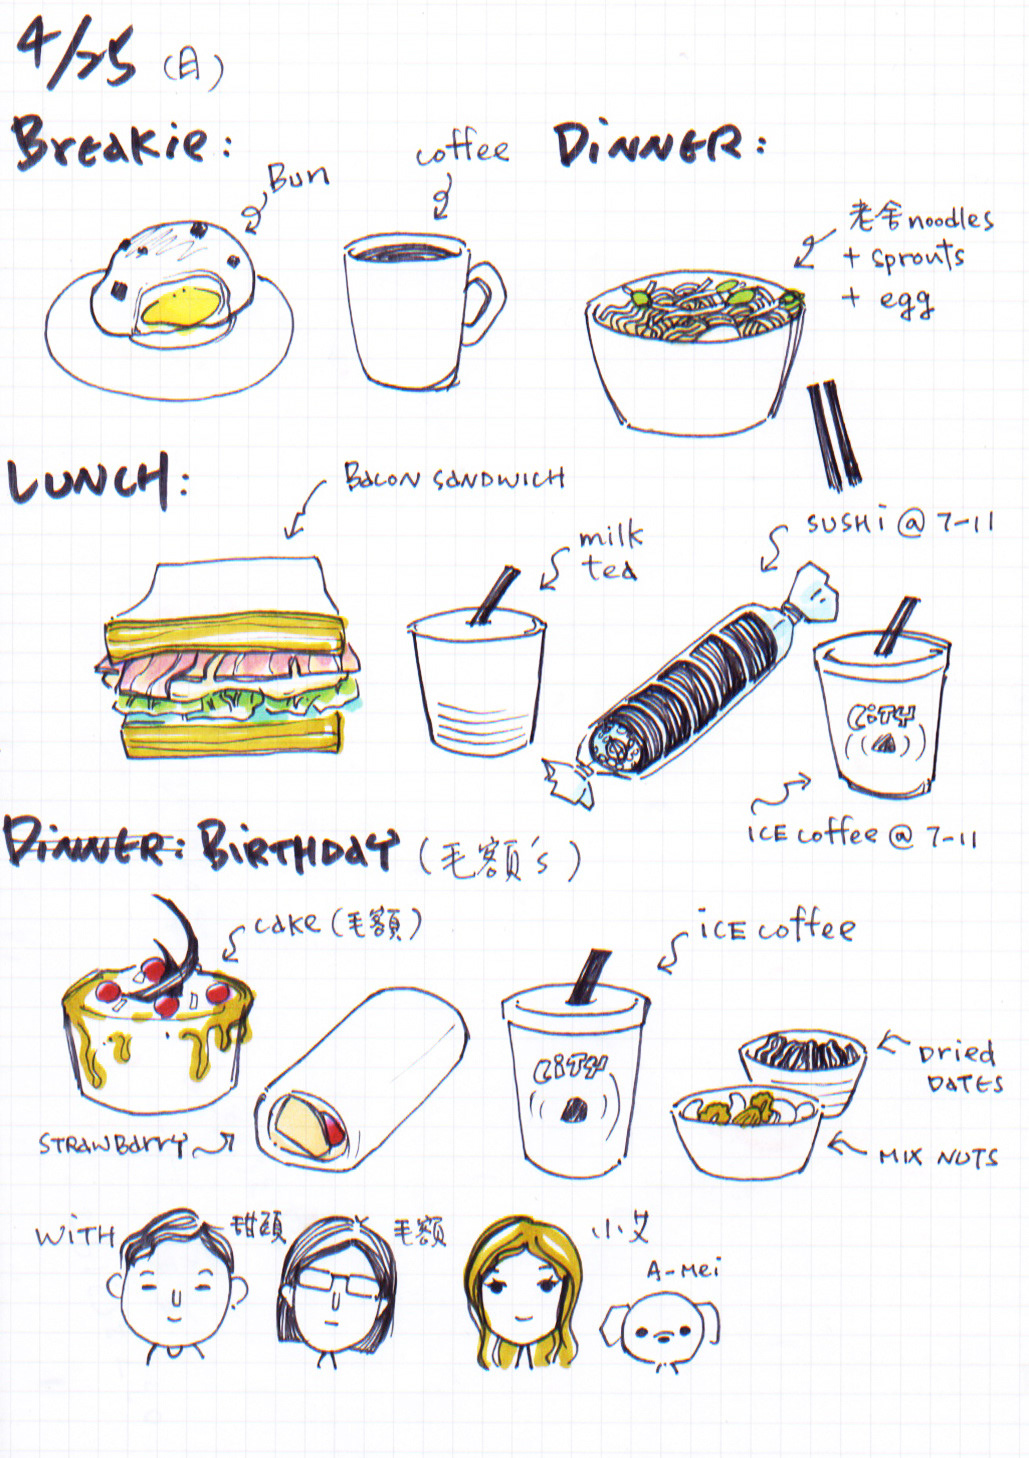 4/25 (日)
Breakie:
Bun
coffee
DiNNER:
老舍 noodles
+ sprouts
+ egg
LUNCH:
BACON SANDWICH
milk
tea
SUSHi @ 7-11
CiTY
iCE coffee @ 7-11
DiNNER: BiRTHDAY (毛額's)
cake (毛額)
iCE coffee
CiTY
DRied
DATES
STRAWBarrY
MIX NUTS
WiTH
甜頭
毛額
小艾
A-Mei